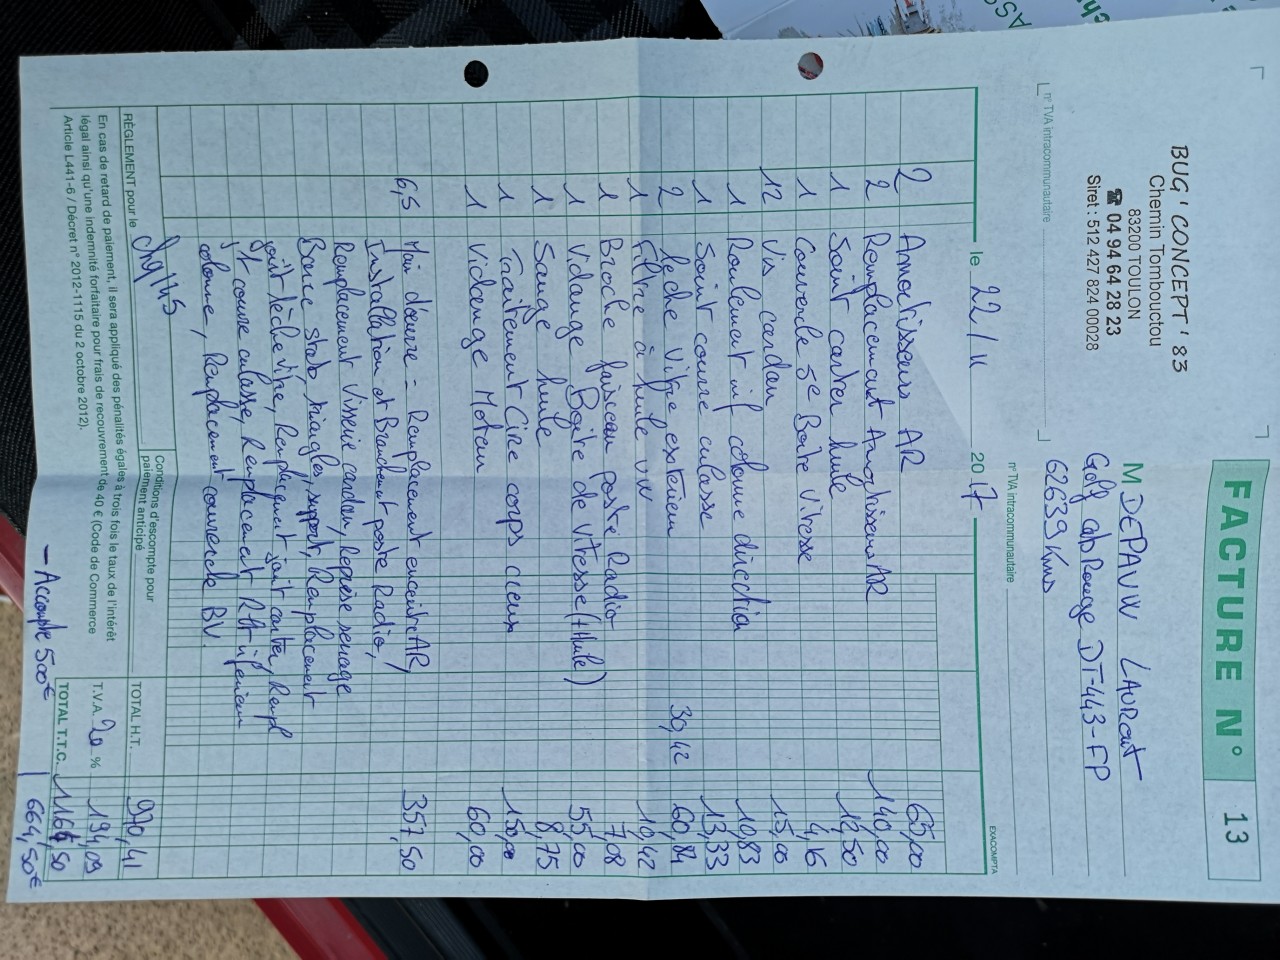 FACTURE N° 13
BUG' CONCEPT' 83
Chemin Tombouctou
83200 TOULON
☎ 04 94 64 28 23
Siret : 512 427 824 00028
n° TVA intracommunautaire
M DEPAUW LAURENT
Golf cab Rouge DT-443-FP
62639 Kms
n° TVA intracommunautaire
le 22/11 2017
EXACOMPTA
2 Amortisseurs AR 65,00
2 Remplacement Amortisseurs AR 140,00
1 Joint carter huile 12,50
1 Couvercle 5e Boite Vitesse 4,16
12 Vis cardan 15,00
1 Roulement inf colonne direction 10,83
1 Joint couvre culasse 13,33
2 Leche Vitre exterieur 30,42 60,84
1 Filtre à huile VW 10,42
1 Broche faisceau poste Radio 7,08
1 Vidange Boite de Vitesse (+Huile) 55,00
1 Jauge huile 8,75
1 Traitement Cire corps creux 150,00
1 Vidange Moteur 60,00
6,5 Main d'œuvre = Remplacement enceintre AR, 357,50
Installation et Branchement poste Radio,
Remplacement Visserie cardan, reprise serrage
Barre stab, triangles, support, Remplacement
joint lèche vitre, Remplacement joint carter, Rempl
jt couvre culasse, Remplacement Rlt inferieur
colonne, Remplacement couvercle BV.
RÈGLEMENT pour le
Conditions d'escompte pour
paiement anticipé
TOTAL H.T. 970,41
T.V.A. 20 % 194,09
TOTAL T.T.C. 1164,50
En cas de retard de paiement, il sera appliqué des pénalités égales à trois fois le taux de l'intérêt
légal ainsi qu'une indemnité forfaitaire pour frais de recouvrement de 40 € (Code de Commerce
Article L441-6 / Décret n° 2012-1115 du 2 octobre 2012).
- Accompte 500€ 664,50€